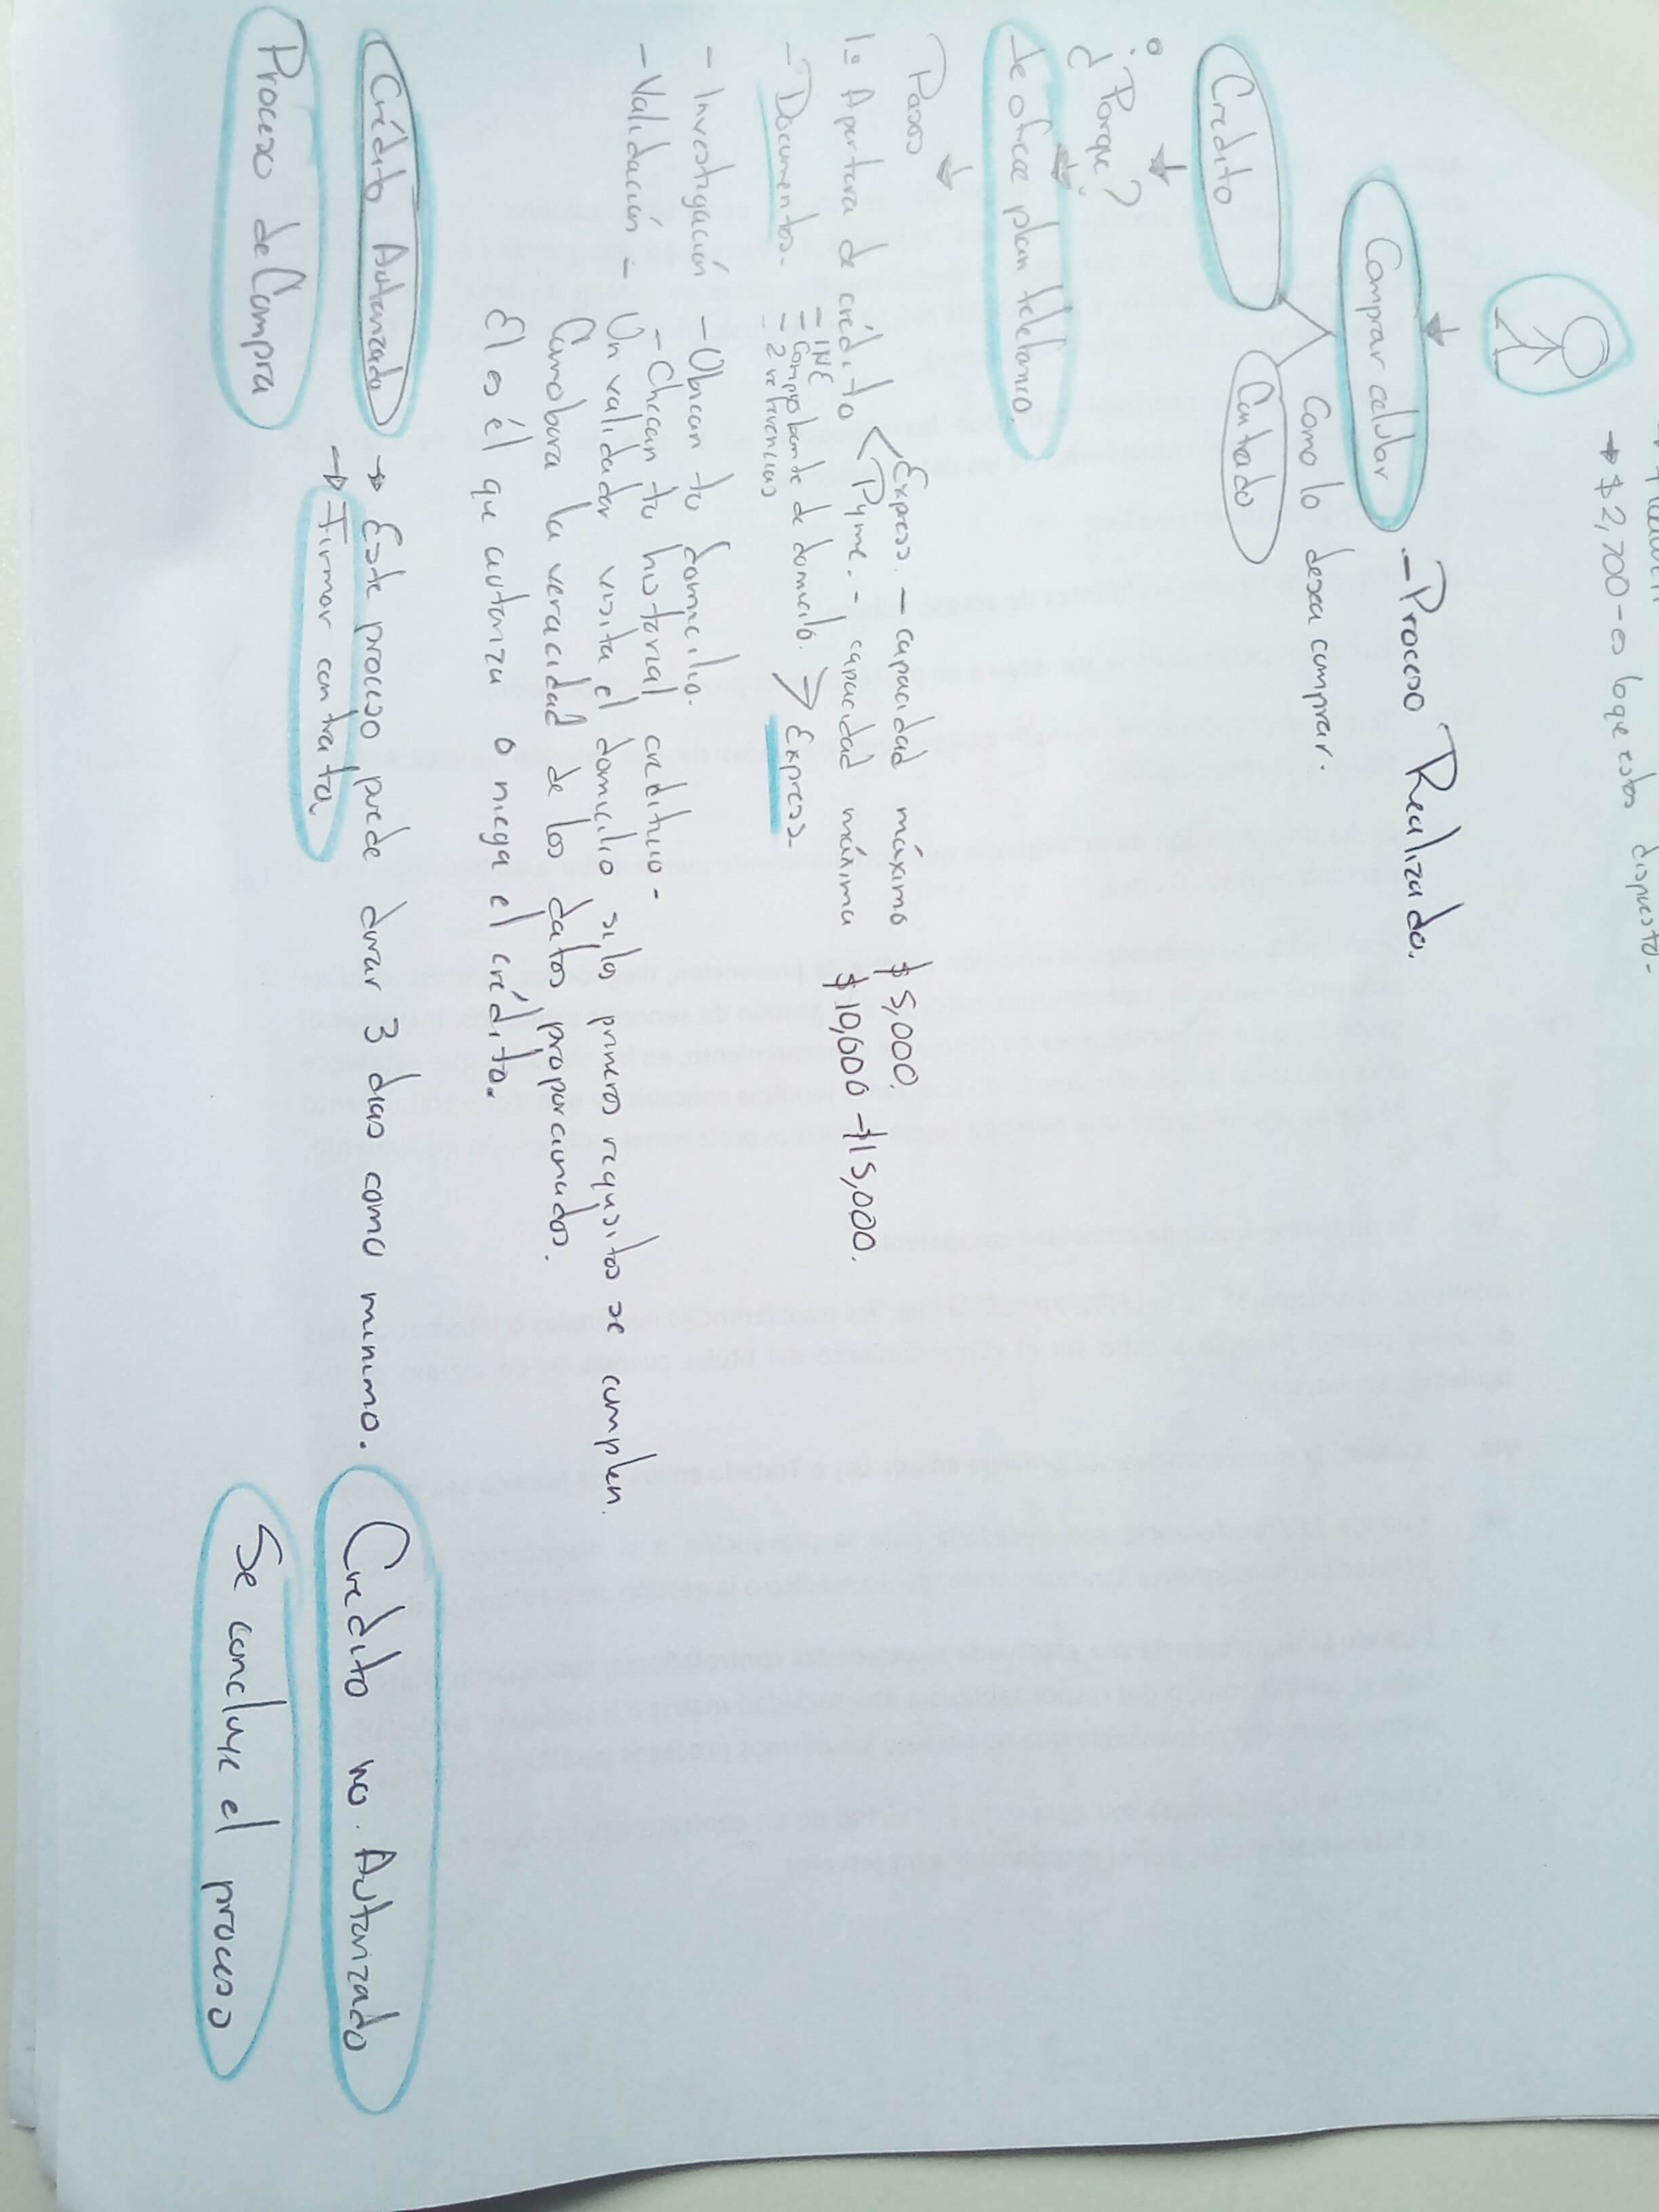 → $2,700 - es lo que estas dispuesto -
Comprar celular
.- Proceso Realizado.
Como lo desea comprar.
Credito
Contado
¿Porque?
Se ofrece plan telefonico.
Pasos
Express. - capacidad máximo $5,000.
1º Apertura de crédito
Pyme. - capacidad máxima $10,000 - $15,000.
- Documentos.
- INE
- Comprobante de domicilo.
- 2 referencias
Express
- Investigación - Ubican tu domicilio.
- Checan tu historial crediticio -
- Validación -
Un validador visita el domicilio si los primeros requisitos se cumplen.
Comobora la veracidad de los datos proporcionados.
El es él que autoriza o niega el crédito.
Crédito Autorizado → Este proceso puede durar 3 dias como minimo.
→ Firmar contrato
Credito no. Autorizado
Proceso de Compra
Se concluye el proceso